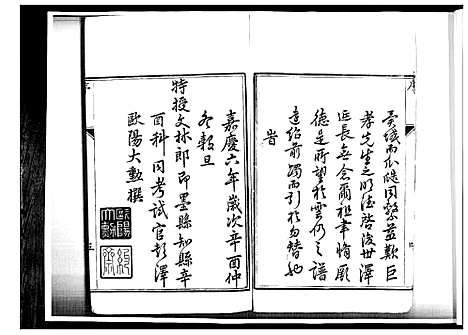 孝先生之明德啓後世澤
延長無念爾祖聿脩厥
德是所望於雲仍之譜
遠紹前躅而引於勿替也
旹
嘉慶六年歲次辛酉仲
冬穀旦
特授文林郎即墨縣知縣辛
酉科同考試官彭澤
歐陽大勲撰
序